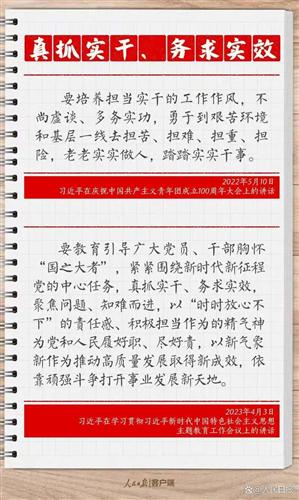 真抓实干、务求实效
要培养担当实干的工作作风，不
尚虚谈、多务实功，勇于到艰苦环境
和基层一线去担苦、担难、担重、担
险，老老实实做人，踏踏实实干事。
2022年5月10日
习近平在庆祝中国共产主义青年团成立100周年大会上的讲话
要教育引导广大党员、干部胸怀
“国之大者”，紧紧围绕新时代新征程
党的中心任务，真抓实干、务求实效，
聚焦问题、知难而进，以“时时放心不
下”的责任感、积极担当作为的精气神
为党和人民履好职、尽好责，以新气象
新作为推动高质量发展取得新成效，依
靠顽强斗争打开事业发展新天地。
2023年4月3日
习近平在学习贯彻习近平新时代中国特色社会主义思想
主题教育工作会议上的讲话
人民日报客户端
@人民日报